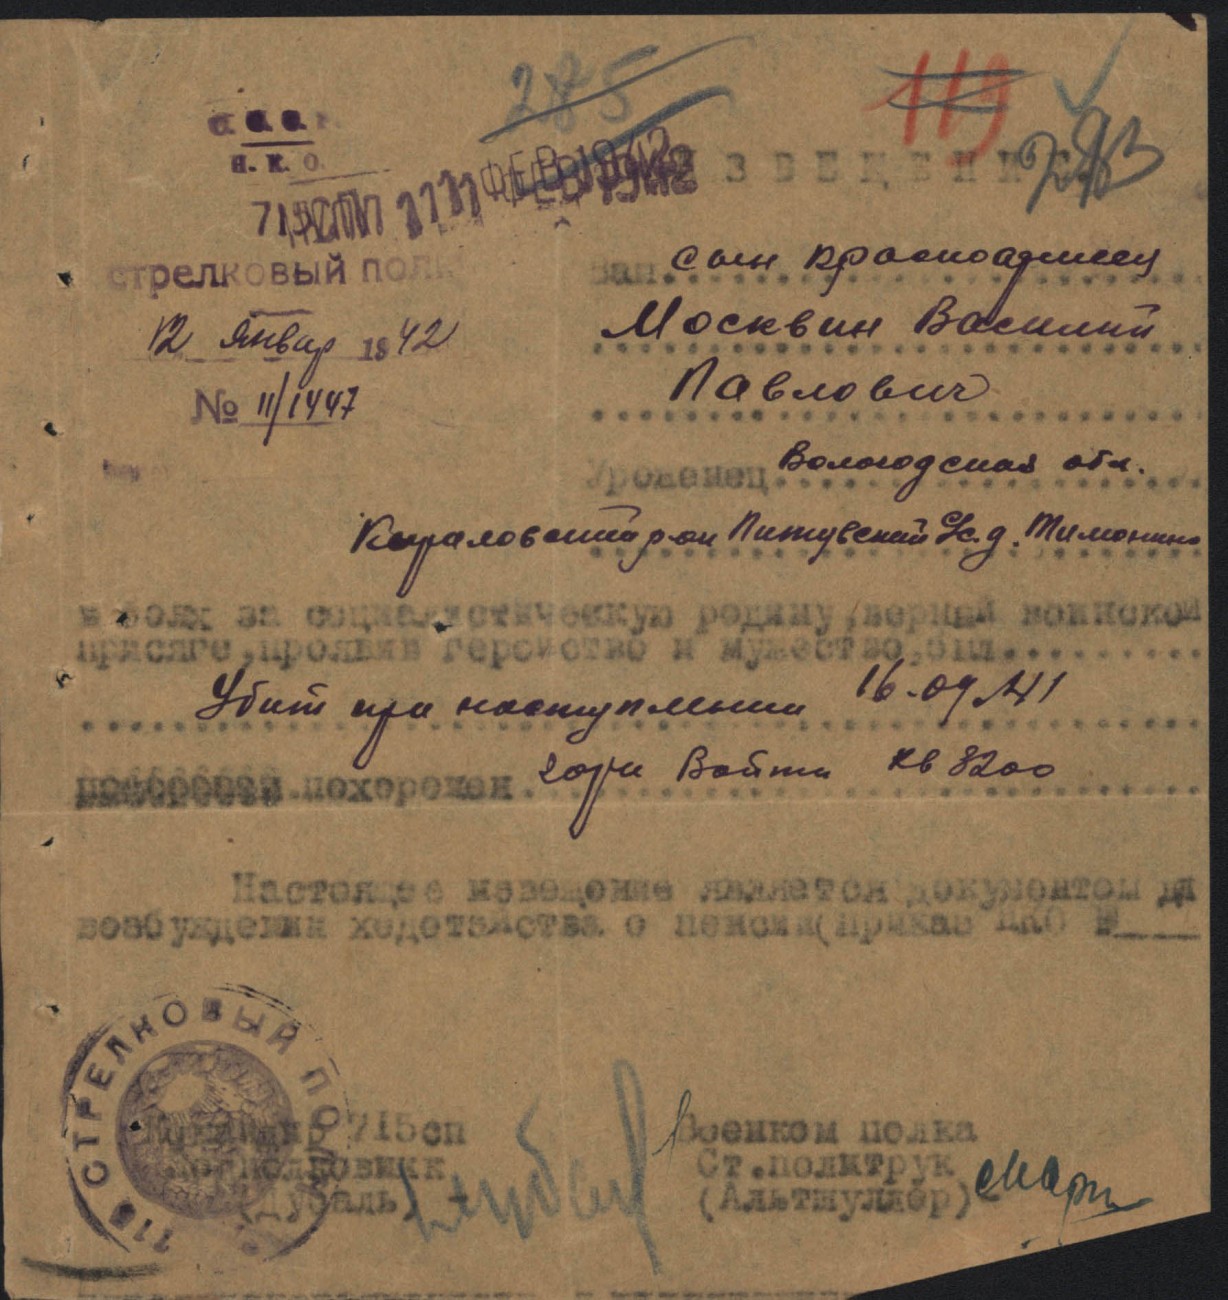 285
119
283
Н.К.О.
715
11 ФЕВ 1942
ИЗВЕЩЕНИЕ
стрелковый полк
12 январ 1942
№ 11/1447
Ваш сын красноармеец
Москвин Василий
Павлович
Уроженец Вологодская обл.
рон с. д. Тимонино
в боях за социалистическую родину, верный воинской
присяге, проявив геройство и мужество, был
Убит при наступлении 16.09.41
похоронен Войти кв 8200
Настоящее извещение является документом дл
возбуждения ходотайства о пенсии(Приказ НКО №
715 СТРЕЛКОВЫЙ ПОЛК
Командир 715сп
подполковник
(Дубаль)
Военком полка
Ст.политрук
(Альтшуллер)